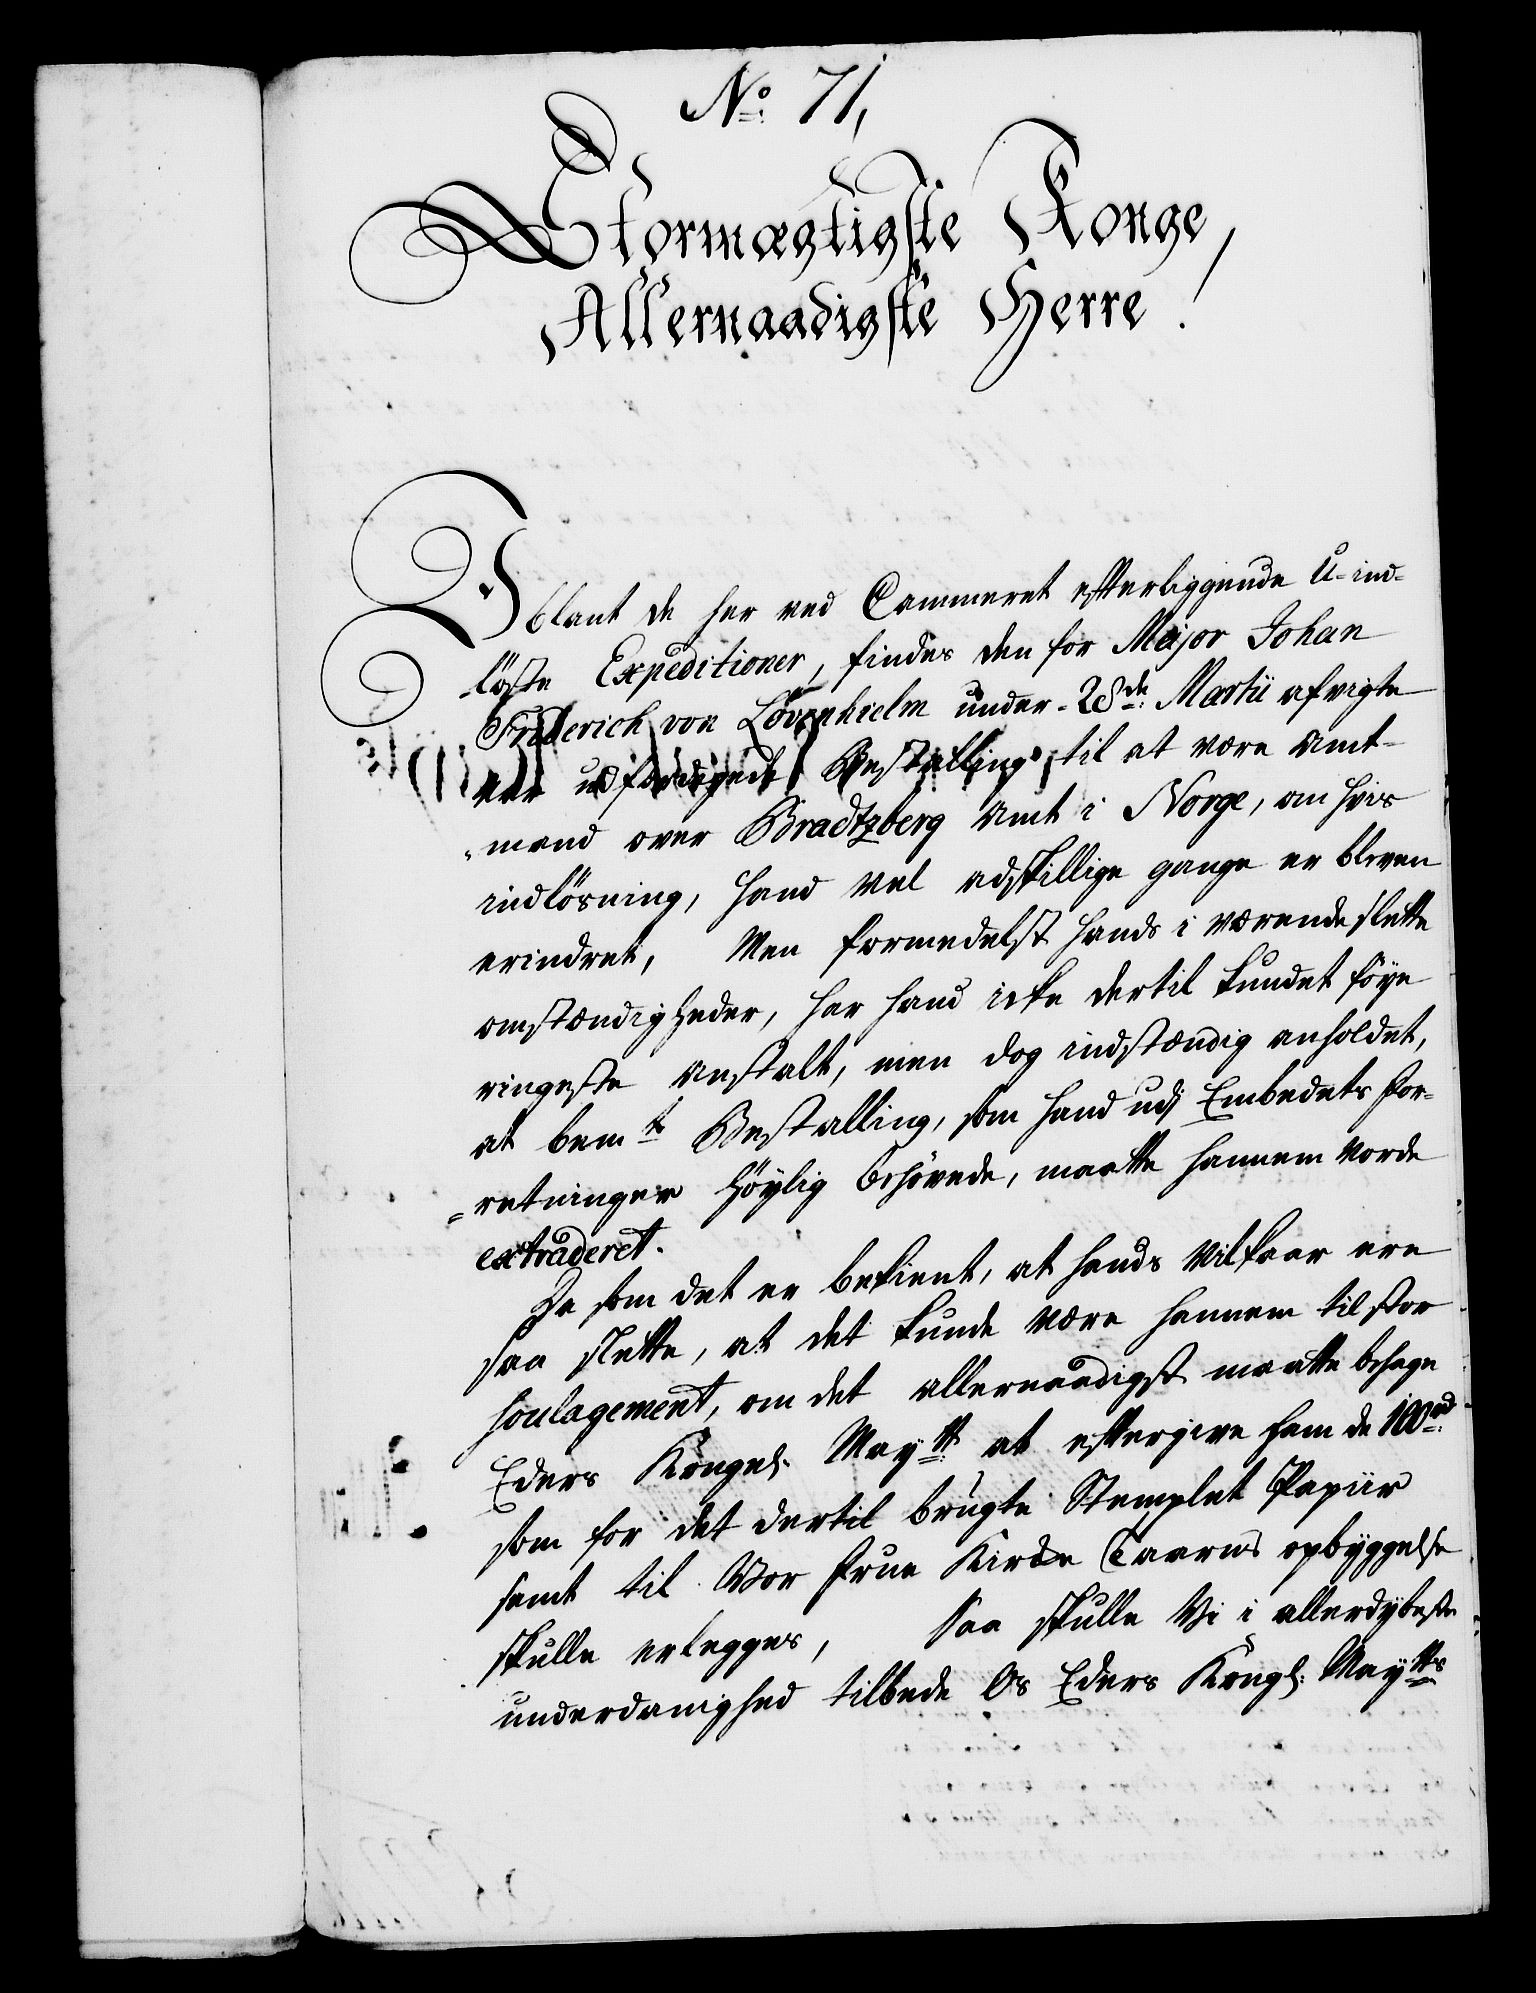 No: 71,
Stormægtigste Konge,
Allernaadigste Herre!
Iblant de her ved Cammeret efterliggende U-ind-
löste Expeditioner, findes den for Major Johan
Friderich von Lövenhielm under 28de: Martii afvigte
aar udfærdigede Bestalling, til at være Amt-
mand over Bradtzberg Amt i Norge, om hvis
indlösning, hand vel adskillige gange er bleven
erindret, Men formedelst hands i værende slette
omstændigheder, har hand icke dertil kundet föye
ringeste anstalt, men dog indstændig anholdet,
at bemte Bestalling, som hand udj Embedets for-
=retninger höylig behövede, maatte hannem vorde
extraderet.
Da som det er bekient, at hands Vilkaar ere
saa slette, at det kunde være hannem til stor
soulagement, om det allernaadigst maatte behage
Eders Kongel. Maytt: at eftergive ham de 100rd:
som for det dertil brugte Stemplet Papiir
samt til Vor Frue Kirke Taarns opbyggelse
skulle erlegges, Saa skulle Vi i allerdybeste
underdanighed tilbede Os Eders Kongl: Maytts